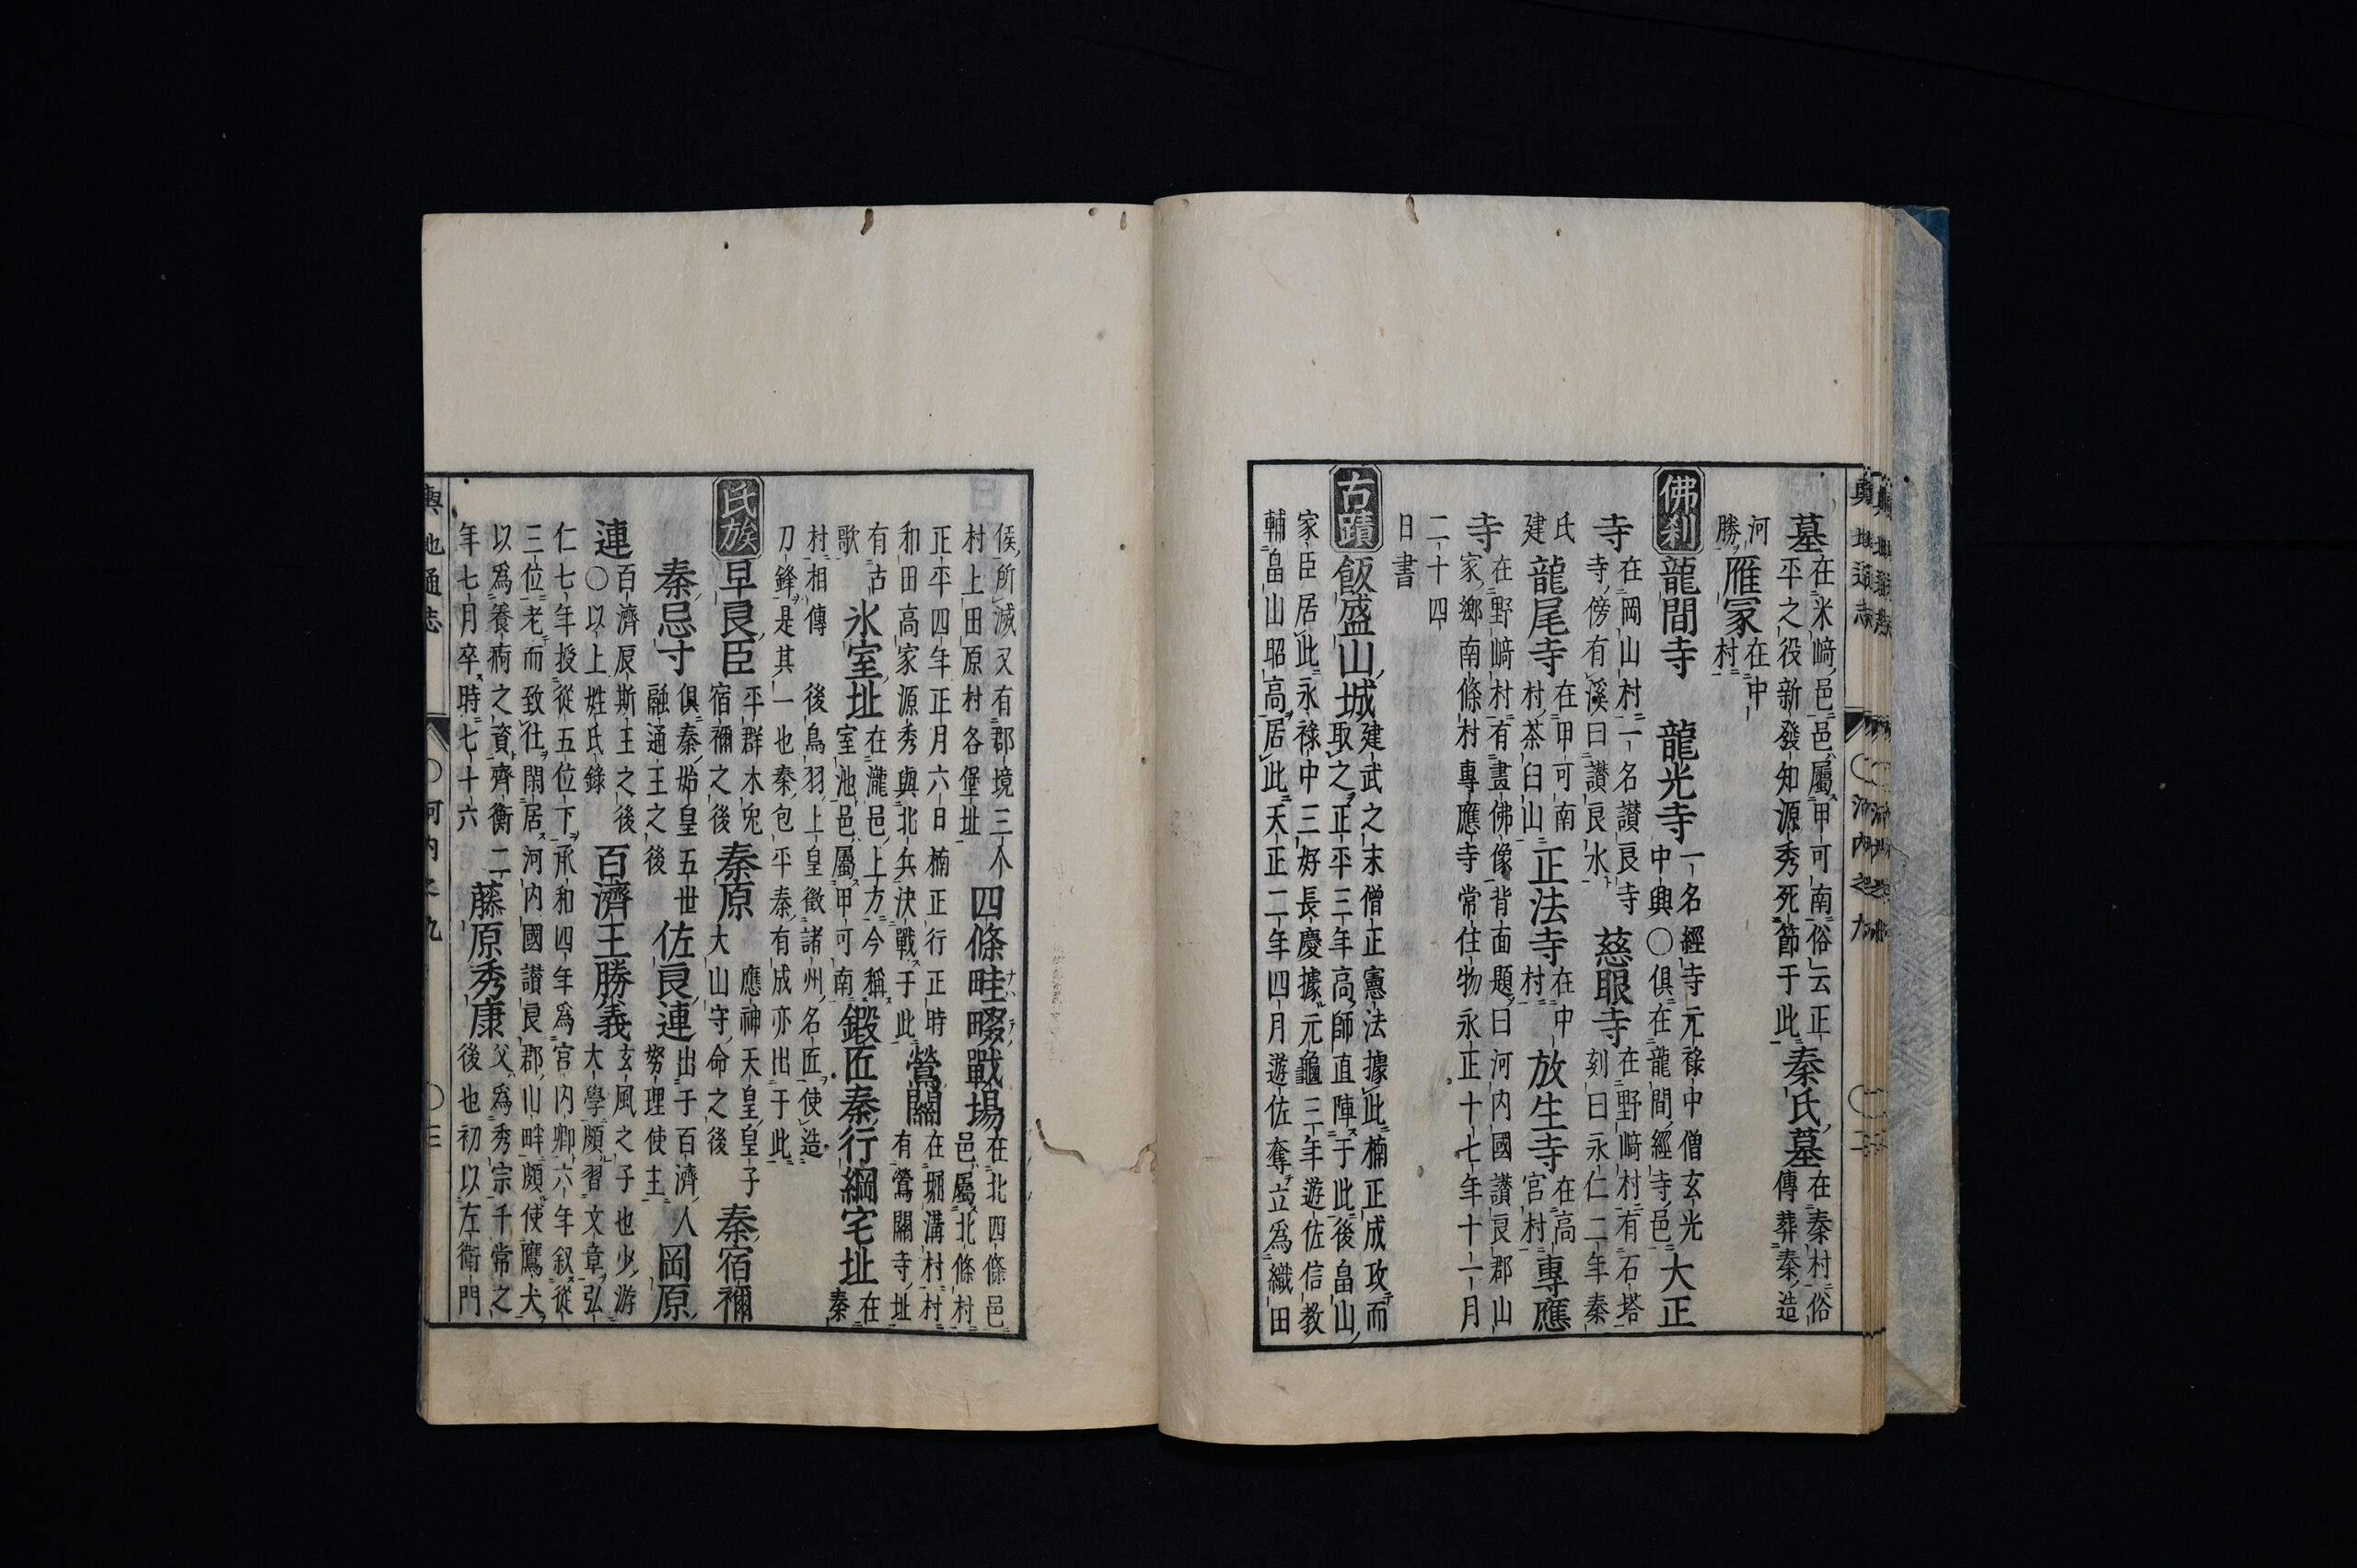 輿地通志 〇河内之九 〇二
墓 在米﨑邑邑屬甲可南俗云正
平之役新發知源秀死節于此 秦氏墓 在秦村俗
傳葬秦造
河
勝 雁冢 在中
村
佛刹 龍間寺 龍光寺 一名經寺元祿中僧玄光
中興〇俱在龍間經寺邑 大正
寺 在岡山村一名讃良寺
寺傍有溪曰讃良水 慈眼寺 在野﨑村有石塔
刻曰永仁二年秦
氏
建 龍尾寺 在甲可南
村茶臼山 正法寺 在中
村 放生寺 在高
宮村 專應
寺 在野﨑村有畫佛像背面題曰河内國讃良郡山
家鄉南條村專應寺常住物永正十七年十一月
二十四
日書
古蹟 飯盛山城 建武之末僧正憲法據此楠正成攻而
取之正平三年高師直陣于此後畠山
家臣居此永祿中三好長慶據元龜三年遊佐信教
輔畠山昭高居此天正二年四月遊佐奪立爲織田
侯所滅又有郡境三个
村上田原村各堡址 四條畦畷戰場 在北四條邑
邑屬北條村
正平四年正月六日楠正行正時
和田高家源秀與北兵決戰于此 鶯關 在堀溝村村
有鶯關寺址
有古
歌 氷室址 在瀧邑上方今稱
室池邑屬甲可南 鍛匠秦行綱宅址 在
秦
村相傳後鳥羽上皇徵諸州名匠使造
刀鋒是其一也秦包平秦有成亦出于此
氏族 早良臣 平群木兎
宿禰之後 秦原 應神天皇皇子
大山守命之後 秦宿禰
秦忌寸 俱秦始皇五世
融通王之後 佐良連 出于百濟人
努理使主 岡原
連 百濟辰斯王之後
〇以上姓氏錄 百濟王勝義 玄風之子也少游
大學頗習文章弘
仁七年授從五位下承和四年爲宮内卿六年叙從
三位老而致仕閑居河内國讃良郡山畔頗使鷹犬
以爲養痾之資齊衡二
年七月卒時七十六 藤原秀康 父爲秀宗千常之
後也初以左衛門
輿地通志 〇河内之九 〇三